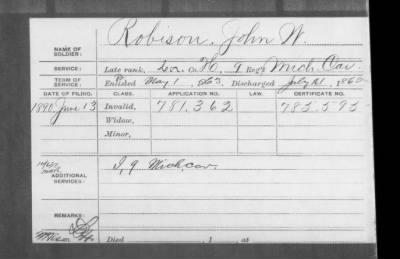 NAME OF SOLDIER: Robison, John W.
SERVICE: Late rank, Co. H, 9 Reg't Mich Cav.
TERM OF SERVICE: Enlisted May 1, 1863. Discharged July 21, 186
DATE OF FILING. CLASS. APPLICATION NO. LAW. CERTIFICATE NO.
1890 June 13 Invalid, 781.362 785.595
Widow,
Minor,
ADDITIONAL SERVICES: I, 9 Mich cav.
REMARKS:
Died , 1 , at